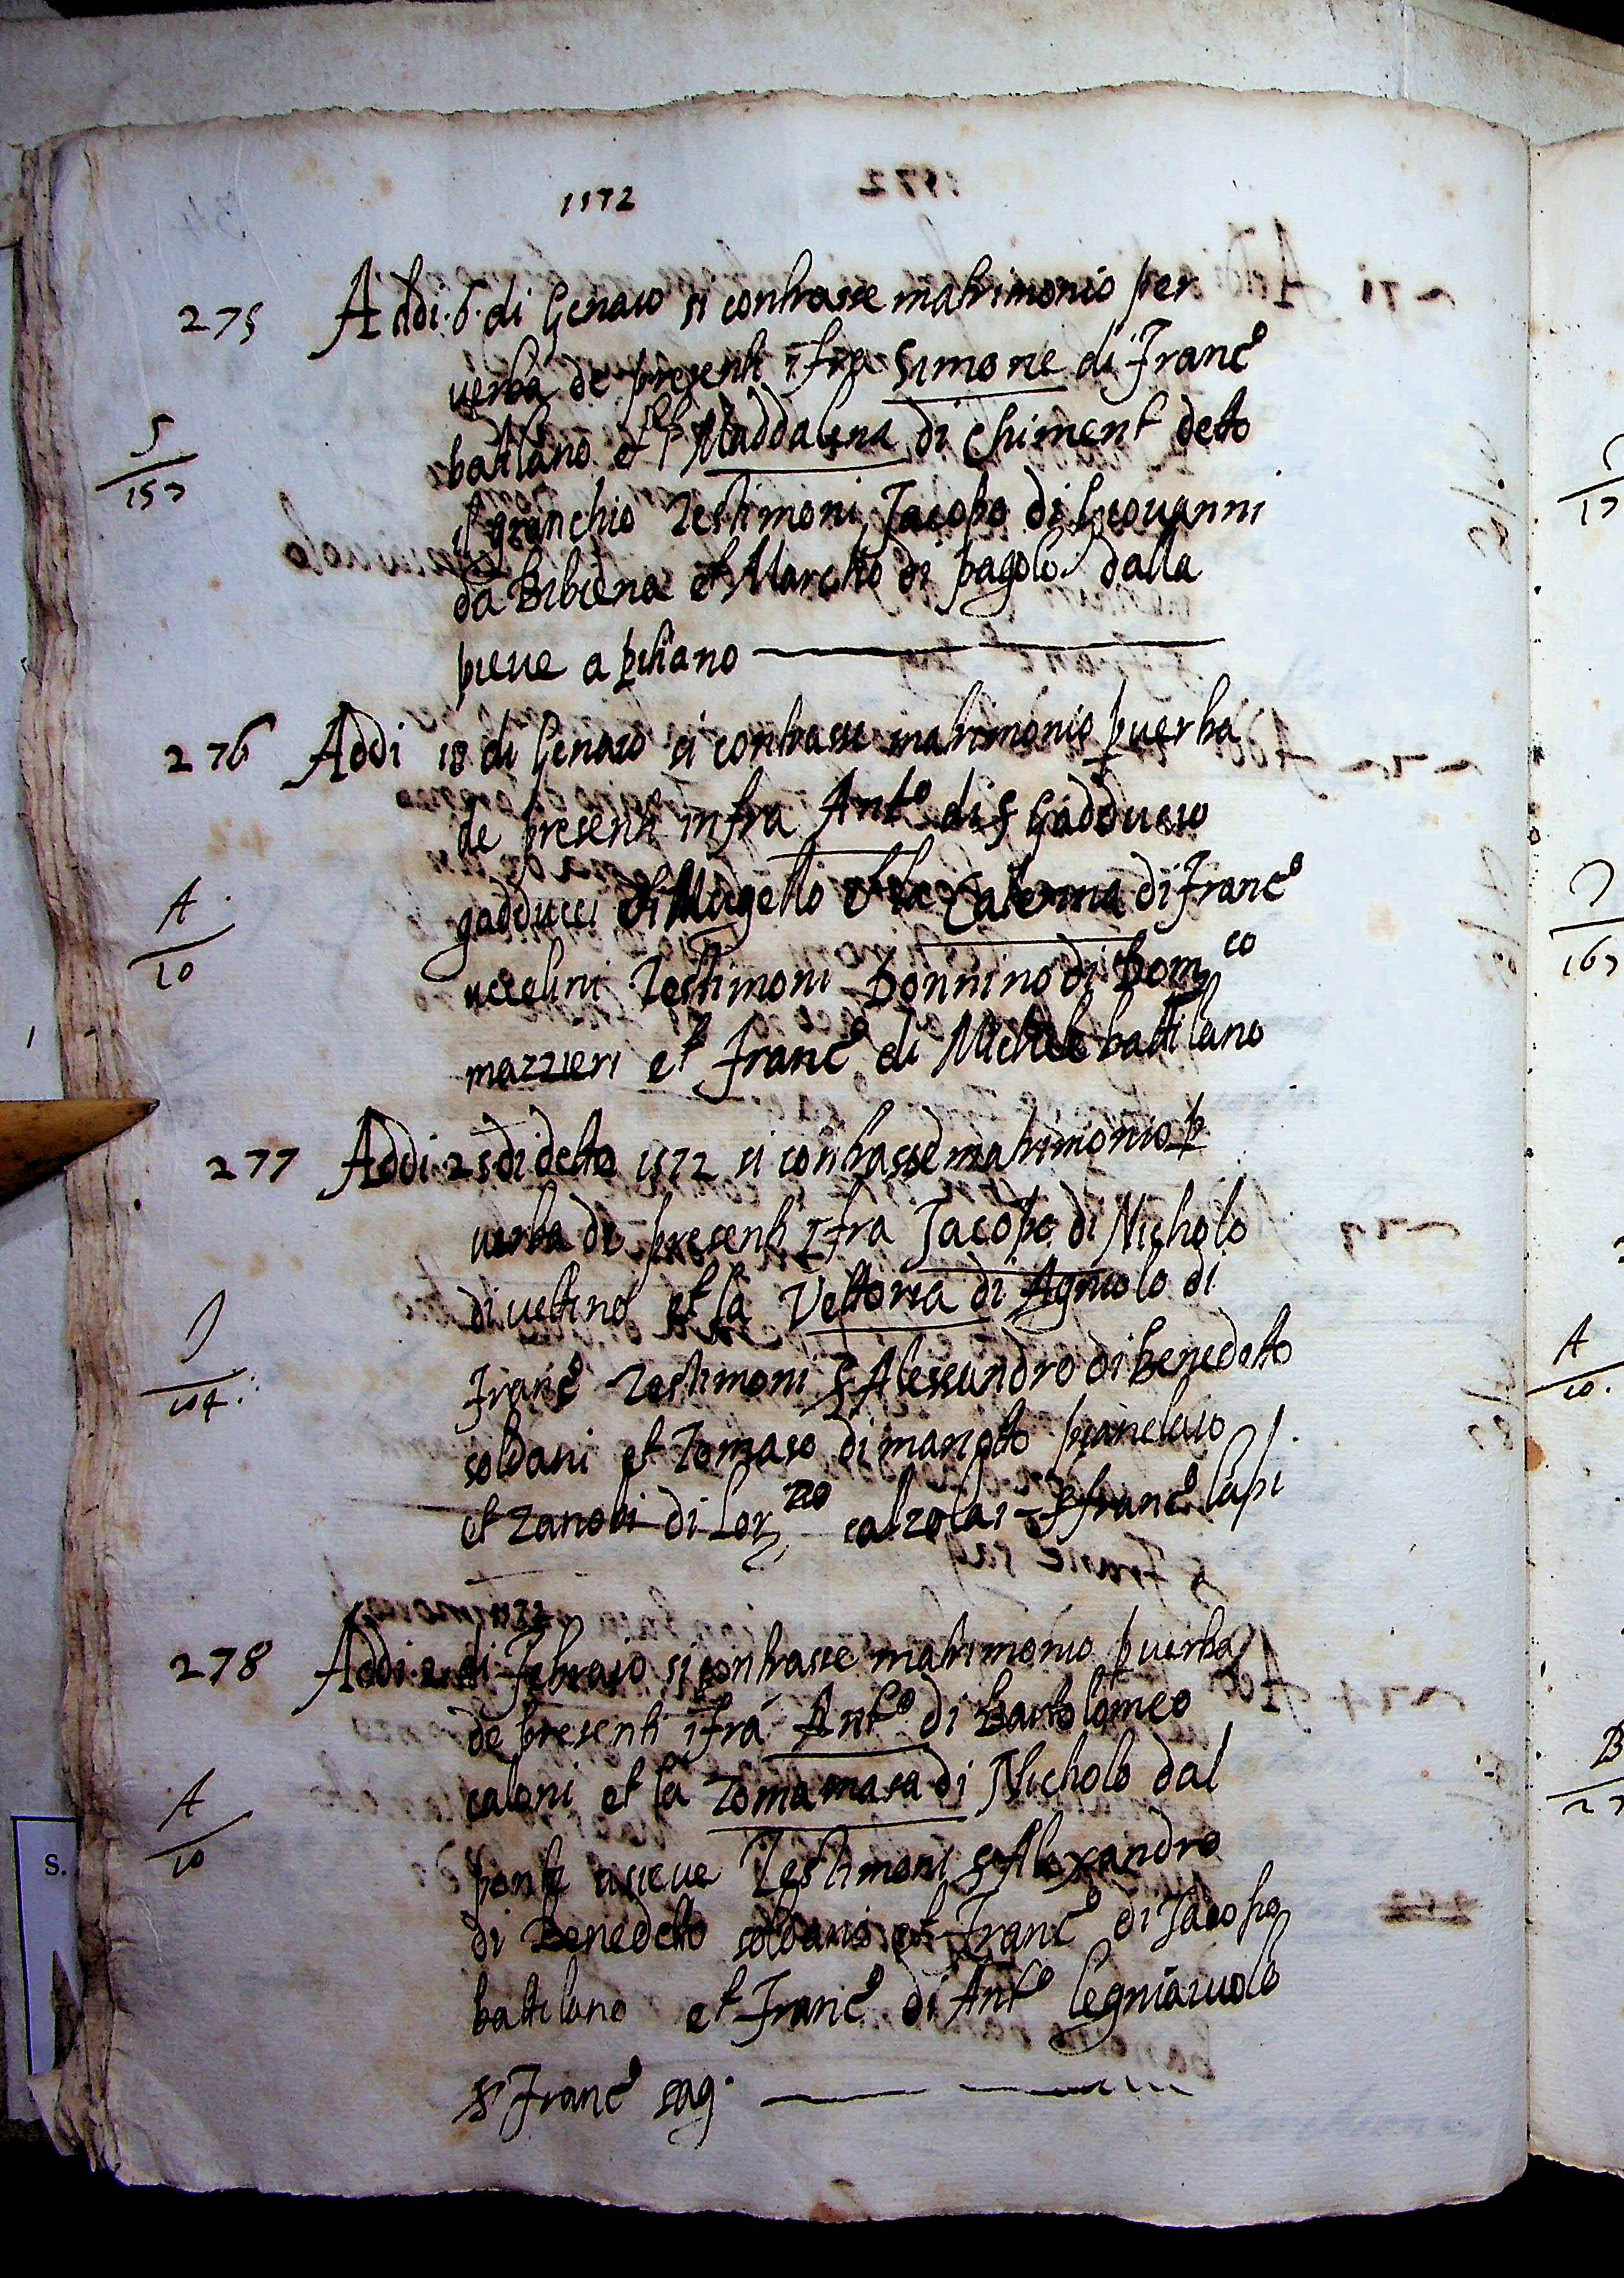 1572
275 Addi .6. di Genaio si contrasse matrimonio per
verba de presenti ifra Simone di Franc.o
battilano et la Maddalena di Chimenti detto
5
157
il granchio Testimoni Jacopo di Giovanni
da Bibiena et Marcho di pagolo dalla
pieve a pitiano
276 Addi 18 di Genaio si contrasse matrimonio p verba
de presenti infra Ant.o di s Gadduccio
gadducci di Mugello et la Caterina di Franc.o
A
10
uccelini Testimoni Bonnino di Dom.co
mazzieri et Franc.o di Michele battilano
277 Addi 25 di detto 1572 si contrasse matrimonio p
verba de presenti ifra Jacopo di Nicholo
di veltino et la Vettoria di Agniolo di
J
104
Franc.o Testimoni s Alessandro di Benedetto
soldani et Tomaso di manotto pianelaio
et Zanobi di Lor.zo calzolai franc.o lapi
1572
278 Addi 2 di Febraio si contrasse matrimonio p verba
de presenti ifra Ant.o di Bartolomeo
calani et la Tomamasa di Nicholo dal
A
10
ponte asieve Testimoni s Alexandro
di Benedetto soldanis et Franc.o di Jacopo
battilano et Franc.o di Ant.o legniaiuolo
s Franc.o sag.